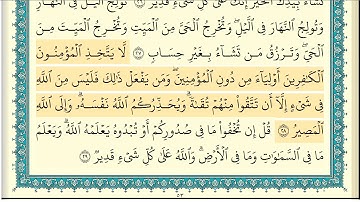 تَشَآءُ بِيَدِكَ ٱلْخَيْرُ إِنَّكَ عَلَىٰ كُلِّ شَىْءٍ قَدِيرٌ ٢٦ تُولِجُ ٱلَّيْلَ فِى ٱلنَّهَارِ
وَتُولِجُ ٱلنَّهَارَ فِى ٱلَّيْلِ وَتُخْرِجُ ٱلْحَىَّ مِنَ ٱلْمَيِّتِ وَتُخْرِجُ ٱلْمَيِّتَ مِنَ
ٱلْحَىِّ وَتَرْزُقُ مَن تَشَآءُ بِغَيْرِ حِسَابٍ ٢٧ لَّا يَتَّخِذِ ٱلْمُؤْمِنُونَ
ٱلْكَٰفِرِينَ أَوْلِيَآءَ مِن دُونِ ٱلْمُؤْمِنِينَ وَمَن يَفْعَلْ ذَٰلِكَ فَلَيْسَ مِنَ ٱللَّهِ
فِى شَىْءٍ إِلَّآ أَن تَتَّقُوا۟ مِنْهُمْ تُقَىٰةً وَيُحَذِّرُكُمُ ٱللَّهُ نَفْسَهُۥ وَإِلَى ٱللَّهِ
ٱلْمَصِيرُ ٢٨ قُلْ إِن تُخْفُوا۟ مَا فِى صُدُورِكُمْ أَوْ تُبْدُوهُ يَعْلَمْهُ ٱللَّهُ وَيَعْلَمُ
مَا فِى ٱلسَّمَٰوَٰتِ وَمَا فِى ٱلْأَرْضِ وَٱللَّهُ عَلَىٰ كُلِّ شَىْءٍ قَدِيرٌ ٢٩
٥٣